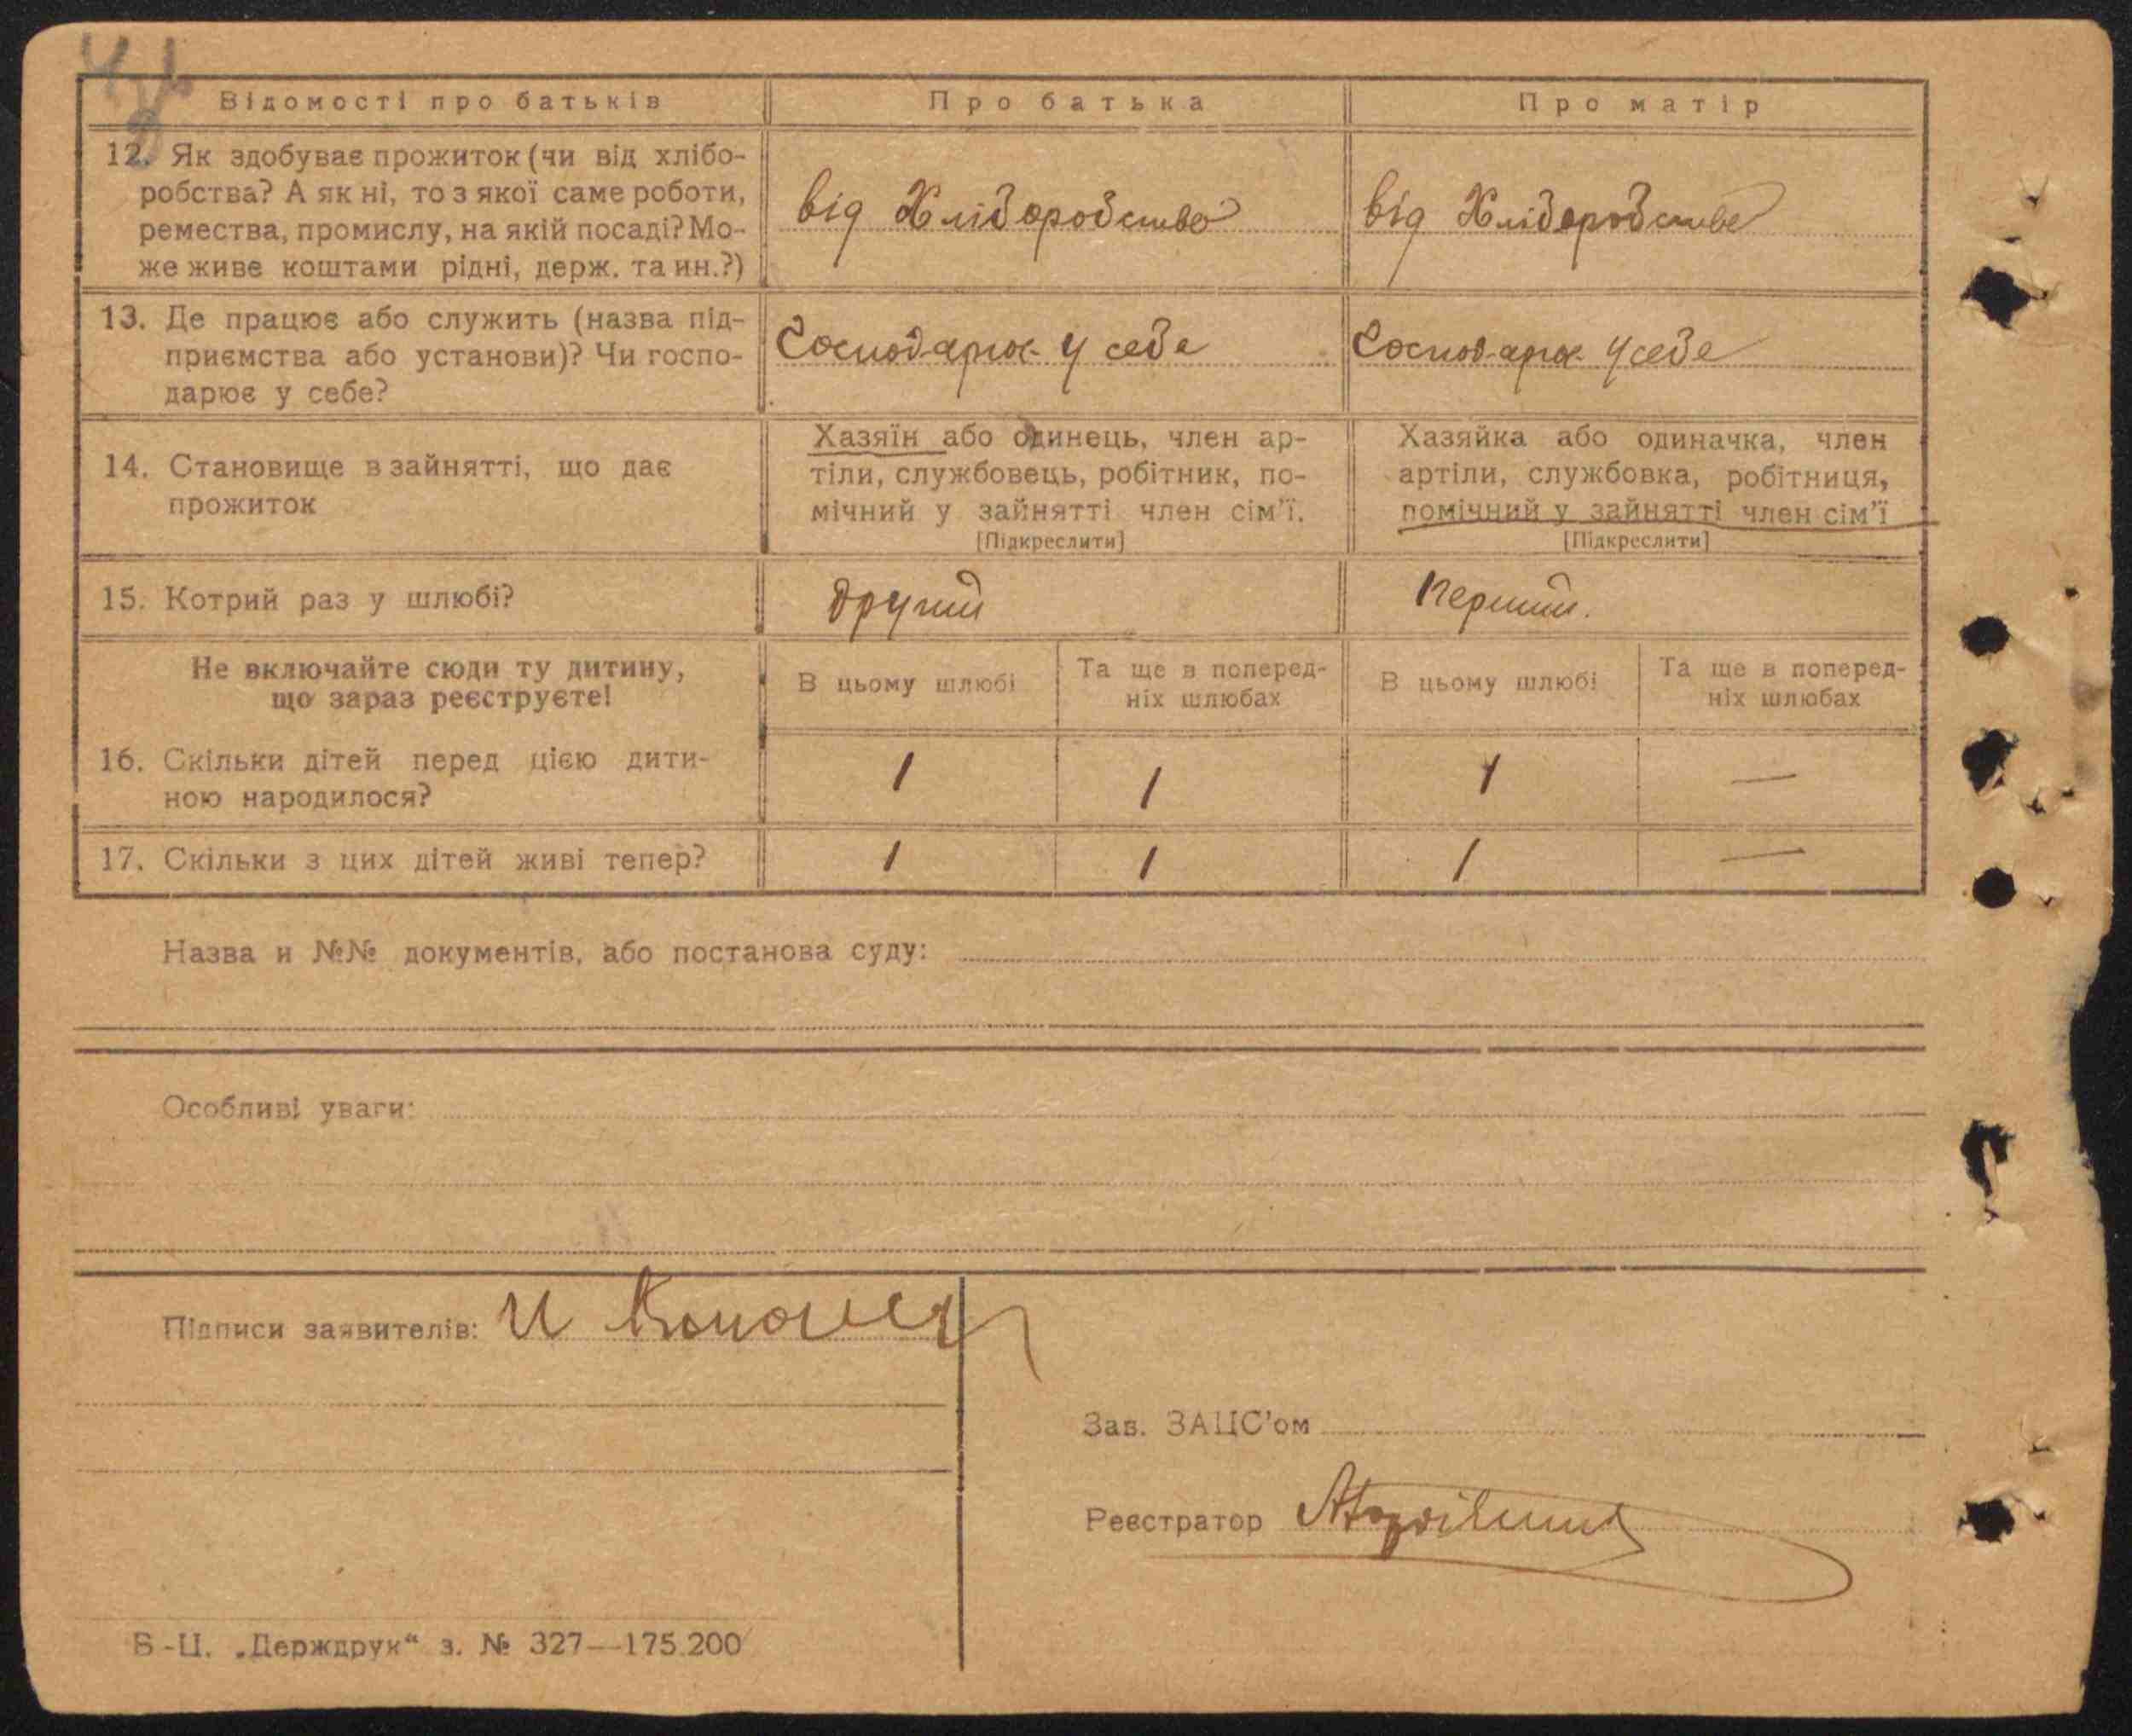 Відомості про батьків
Про батька
Про матір
12. Як здобуває прожиток (чи від хлібо-
робства? А як ні, то з якої саме роботи,
ремества, промислу, на якій посаді? Мо-
же живе коштами рідні, держ. та ин.?)
від Хліборобства
від Хліборобства
13. Де працює або служить (назва під-
приємства або установи)? Чи госпо-
дарює у себе?
Господарює у себе
Господарює у себе
14. Становище в зайнятті, що дає
прожиток
Хазяїн або одинець, член ар-
тіли, службовець, робітник, по-
мічний у зайнятті член сім'ї.
[Підкреслити]
Хазяйка або одиначка, член
артіли, службовка, робітниця,
помічний у зайнятті член сім'ї
[Підкреслити]
15. Котрий раз у шлюбі?
другий
перший.
Не включайте сюди ту дитину,
що зараз реєструєте!
В цьому шлюбі
Та ще в поперед-
ніх шлюбах
В цьому шлюбі
Та ще в поперед-
ніх шлюбах
16. Скільки дітей перед цією дити-
ною народилося?
1
1
1
—
17. Скільки з цих дітей живі тепер?
1
1
1
—
Назва и №№ документів, або постанова суду:
Особливі уваги:
Підписи заявителів: И
Зав. ЗАЦС'ом
Реєстратор
Б-Ц. „Держдрук“ з. № 327—175.200